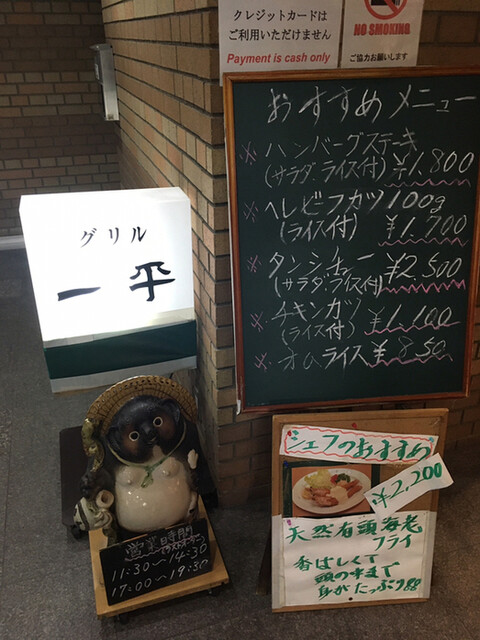 クレジットカードは
ご利用いただけません
Payment is cash only
NO SMOKING
ご協力お願いします
おすすめメニュー
※ハンバーグステーキ
(サラダ・ライス付) ¥1,800
※ヘレビーフカツ100g
(ライス付) ¥1,700
※タンシチュー
(サラダ・ライス付) ¥2,500
※チキンカツ
(ライス付) ¥1,100
※オムライス ¥850
グリル
一平
営業時間
11:30〜14:30
17:00〜19:30
シェフのおすすめ
¥2,200
天然有頭海老
フライ
香ばしくて
頭のみそまで
身がたっぷり